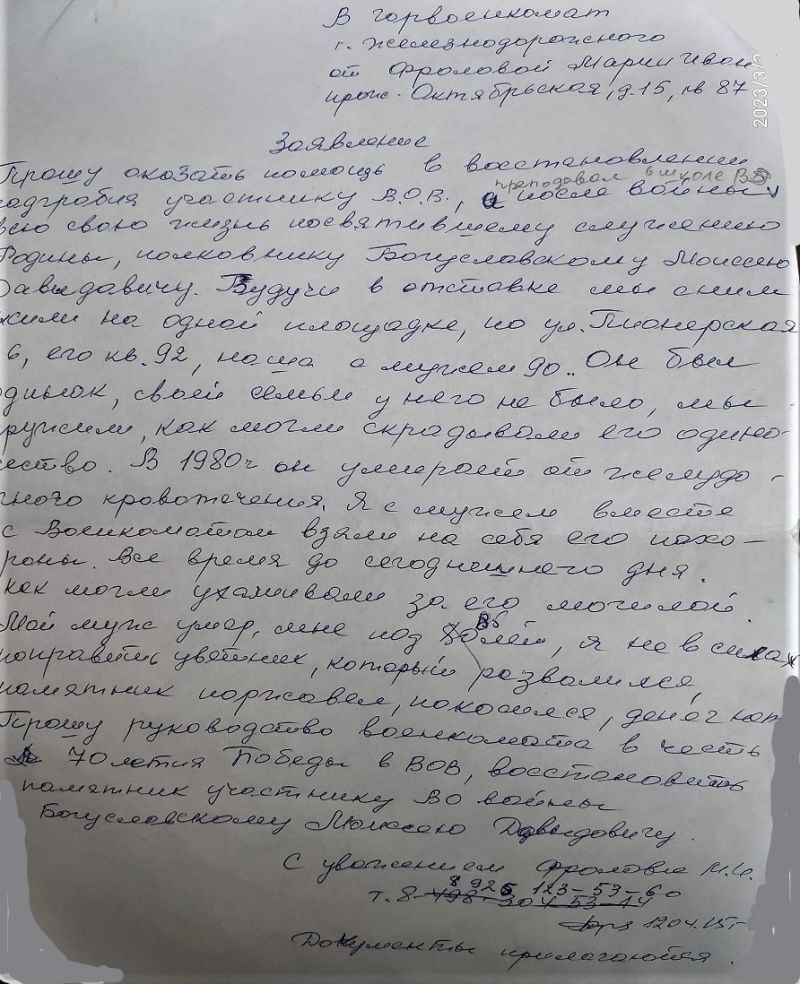 В горвоенкомат
г. Железнодорожного
от Фроловой Марии Иван
прос. Октябрьская, д. 15, кв 87
2023/3/2
Заявление
Прошу оказать помощь в восстановлении
преподавал в школе
надгробия участнику В.О.В., а после войны
всю свою жизнь посвятившему служению
Родины, полковнику Богуславскому Моисею
Давыдавичу. Будучи в отставке мы сним
жили на одной площадке, по ул. Пионерская
6, его кв. 92, наша с мужем 90. Он был
одинок, своей семьи у него не было, мы
дружили, как могли скрадывали его одино-
чество. В 1980г он умирает от желудо-
чного кровотечения. Я с мужем вместе
с Военкоматом взяли на себя его похо-
роны. Все время до сегоднешнего дня.
как могли ухаживали за его могилой.
Мой муж умер, мне под лет, я не в силах
поправить цветник, который развалился,
памятник поржавел, покосился, денег нет
Прошу руководство военкомата в честь
70 летия Победы в ВОВ, восстановить
памятник участнику ВО войны
Богуславскому Моисею Давыдовичу.
С уважением Фролова М.И.
8 925 123-53-60
т. 8-498-304 53-14
12 04.15г
Документы прилагаются.